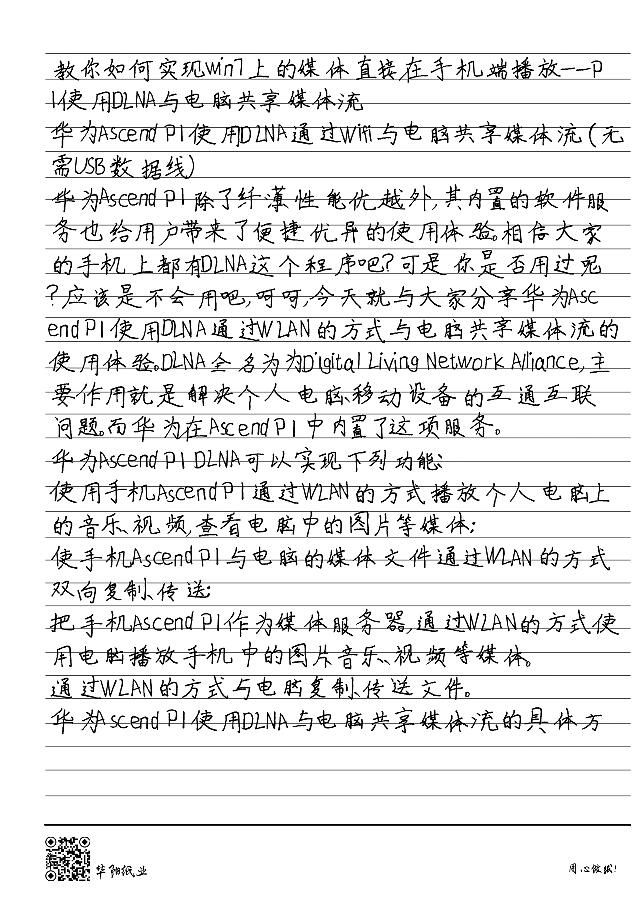 教你如何实现win7上的媒体直接在手机端播放--P
1使用DLNA与电脑共享媒体流
华为Ascend P1使用DLNA通过Wifi与电脑共享媒体流(无
需USB数据线)
华为Ascend P1除了纤薄性能优越外,其内置的软件服
务也给用户带来了便捷优异的使用体验。相信大家
的手机上都有DLNA这个程序吧?可是你是否用过呢
?应该是不会用吧,呵呵,今天就与大家分享华为Asc
end P1使用DLNA通过WLAN的方式与电脑共享媒体流的
使用体验。DLNA全名为为Digital Living Network Alliance,主
要作用就是解决个人电脑、移动设备的互通互联
问题。而华为在Ascend P1中内置了这项服务。
华为Ascend P1 DLNA可以实现下列功能:
使用手机Ascend P1通过WLAN的方式播放个人电脑上
的音乐、视频,查看电脑中的图片等媒体;
使手机Ascend P1与电脑的媒体文件通过WLAN的方式
双向复制、传送;
把手机Ascend P1作为媒体服务器,通过WLAN的方式使
用电脑播放手机中的图片音乐、、视频等媒体。
通过WLAN的方式与电脑复制、传送文件。
华为Ascend P1使用DLNA与电脑共享媒体流的具体方
华阳纸业
用心做纸!